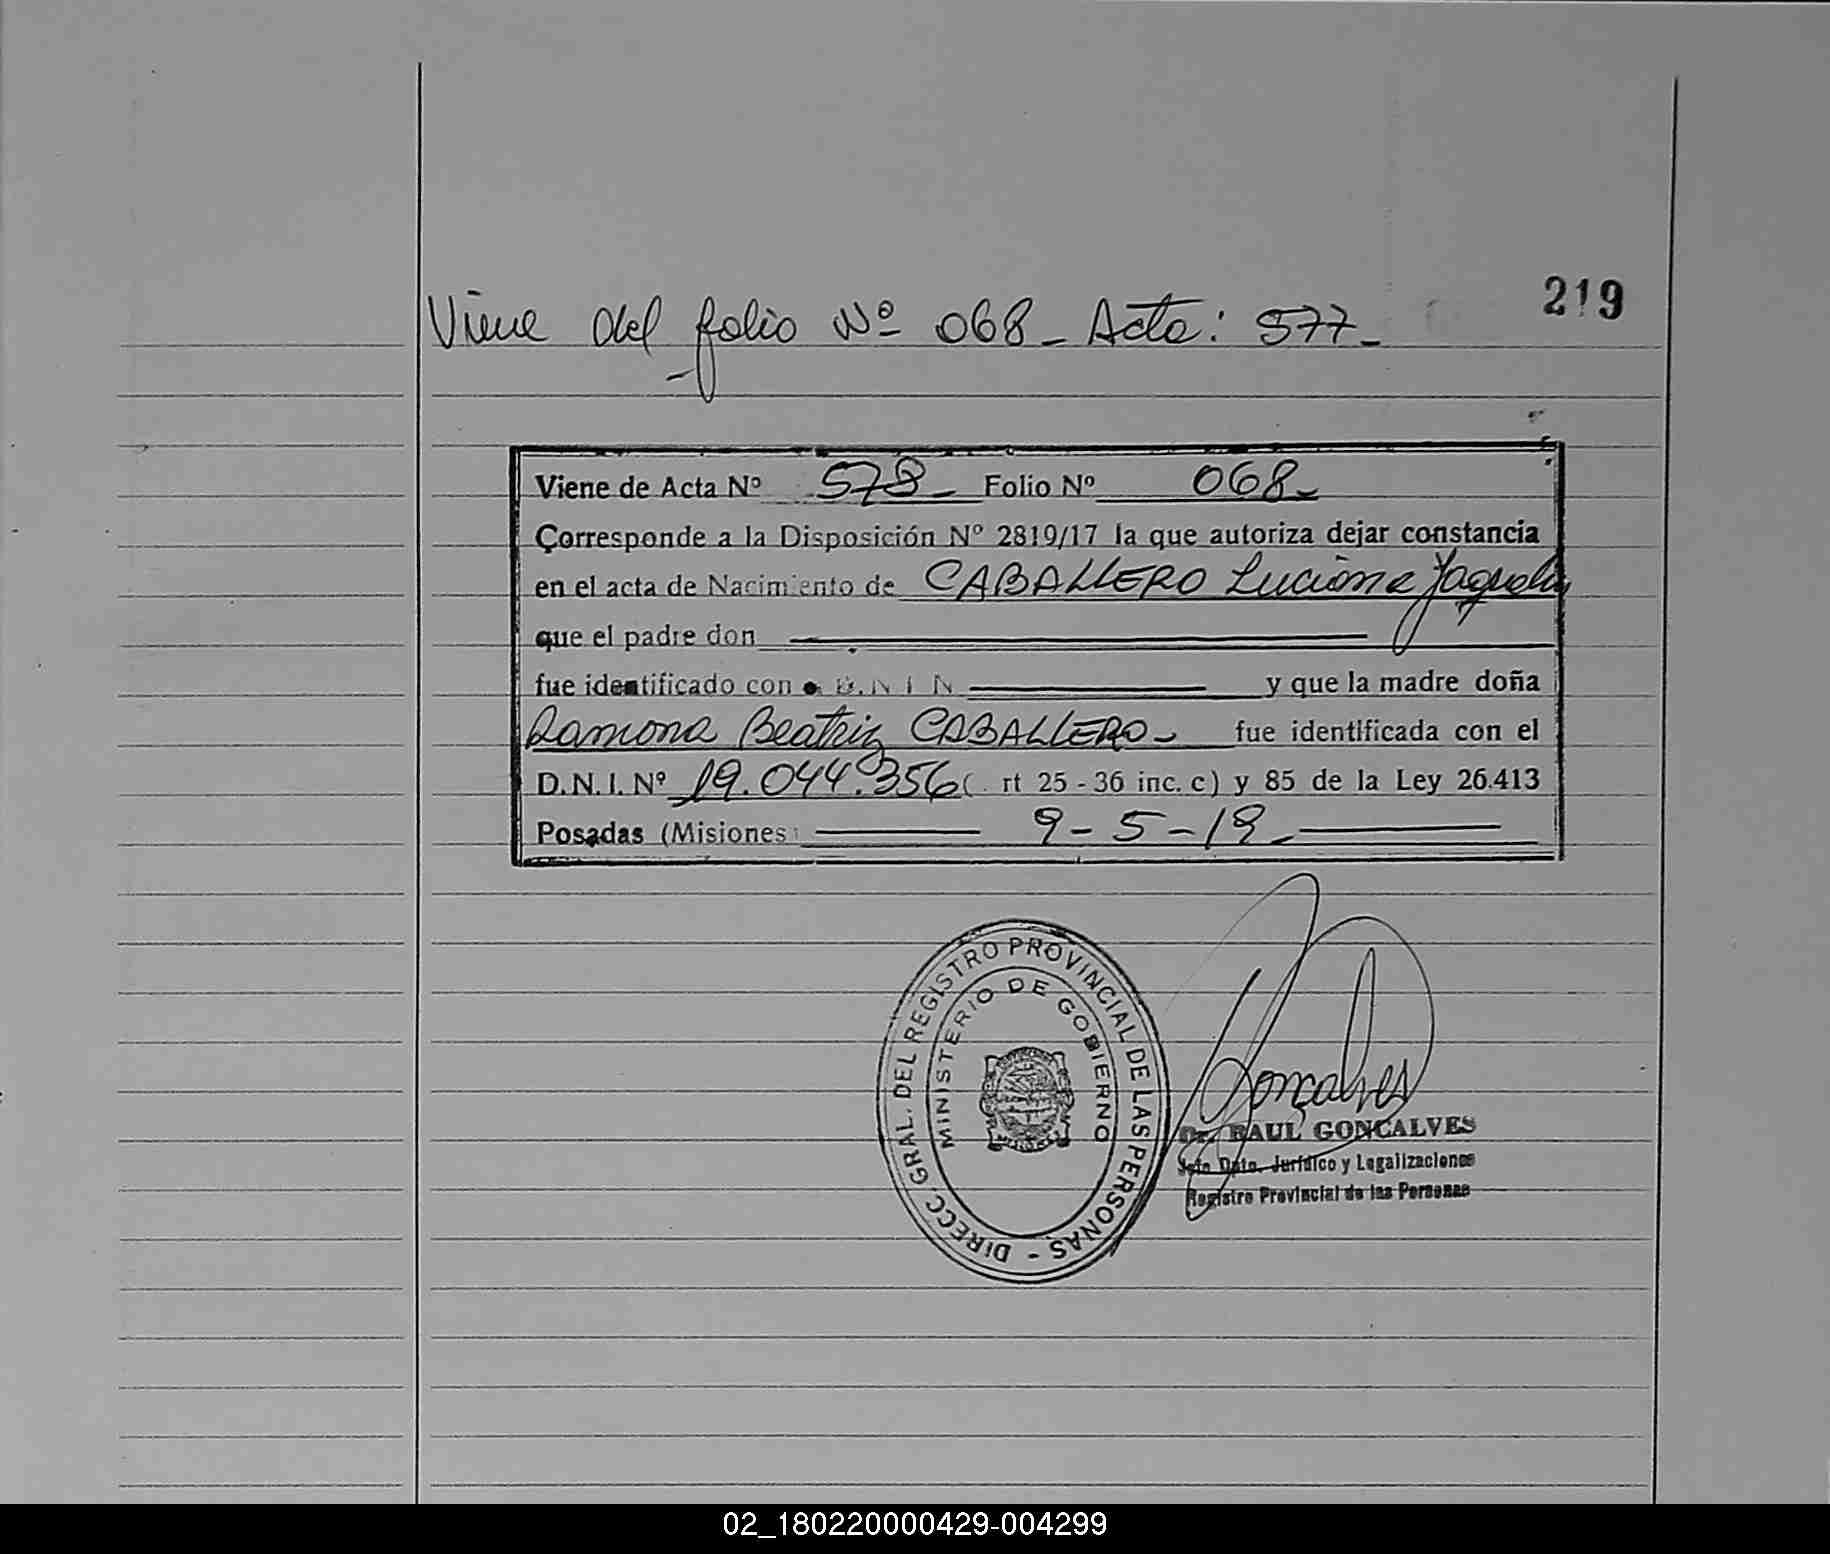 219
Viene del folio Nº 068 - Acta: 577 -
Viene de Acta Nº 578 - Folio Nº 068 -
Corresponde a la Disposición Nº 2819/17 la que autoriza dejar constancia
en el acta de Nacimiento de CABALLERO Luciana Jaquelin
que el padre don
fue identificado con D.N.I N y que la madre doña
Ramona Beatriz CABALLERO - fue identificada con el
D.N.I. Nº 19.044.356 ( rt 25 - 36 inc. c) y 85 de la Ley 26.413
Posadas (Misiones) 9 - 5 - 19 -
DIRECC. GRAL. DEL REGISTRO PROVINCIAL DE LAS PERSONAS -
MINISTERIO DE GOBIERNO
Gonçalves
Dr. RAUL GONCALVES
Jefe Dpto. Jurídico y Legalizaciones
Registro Provincial de las Personas
02_180220000429-004299